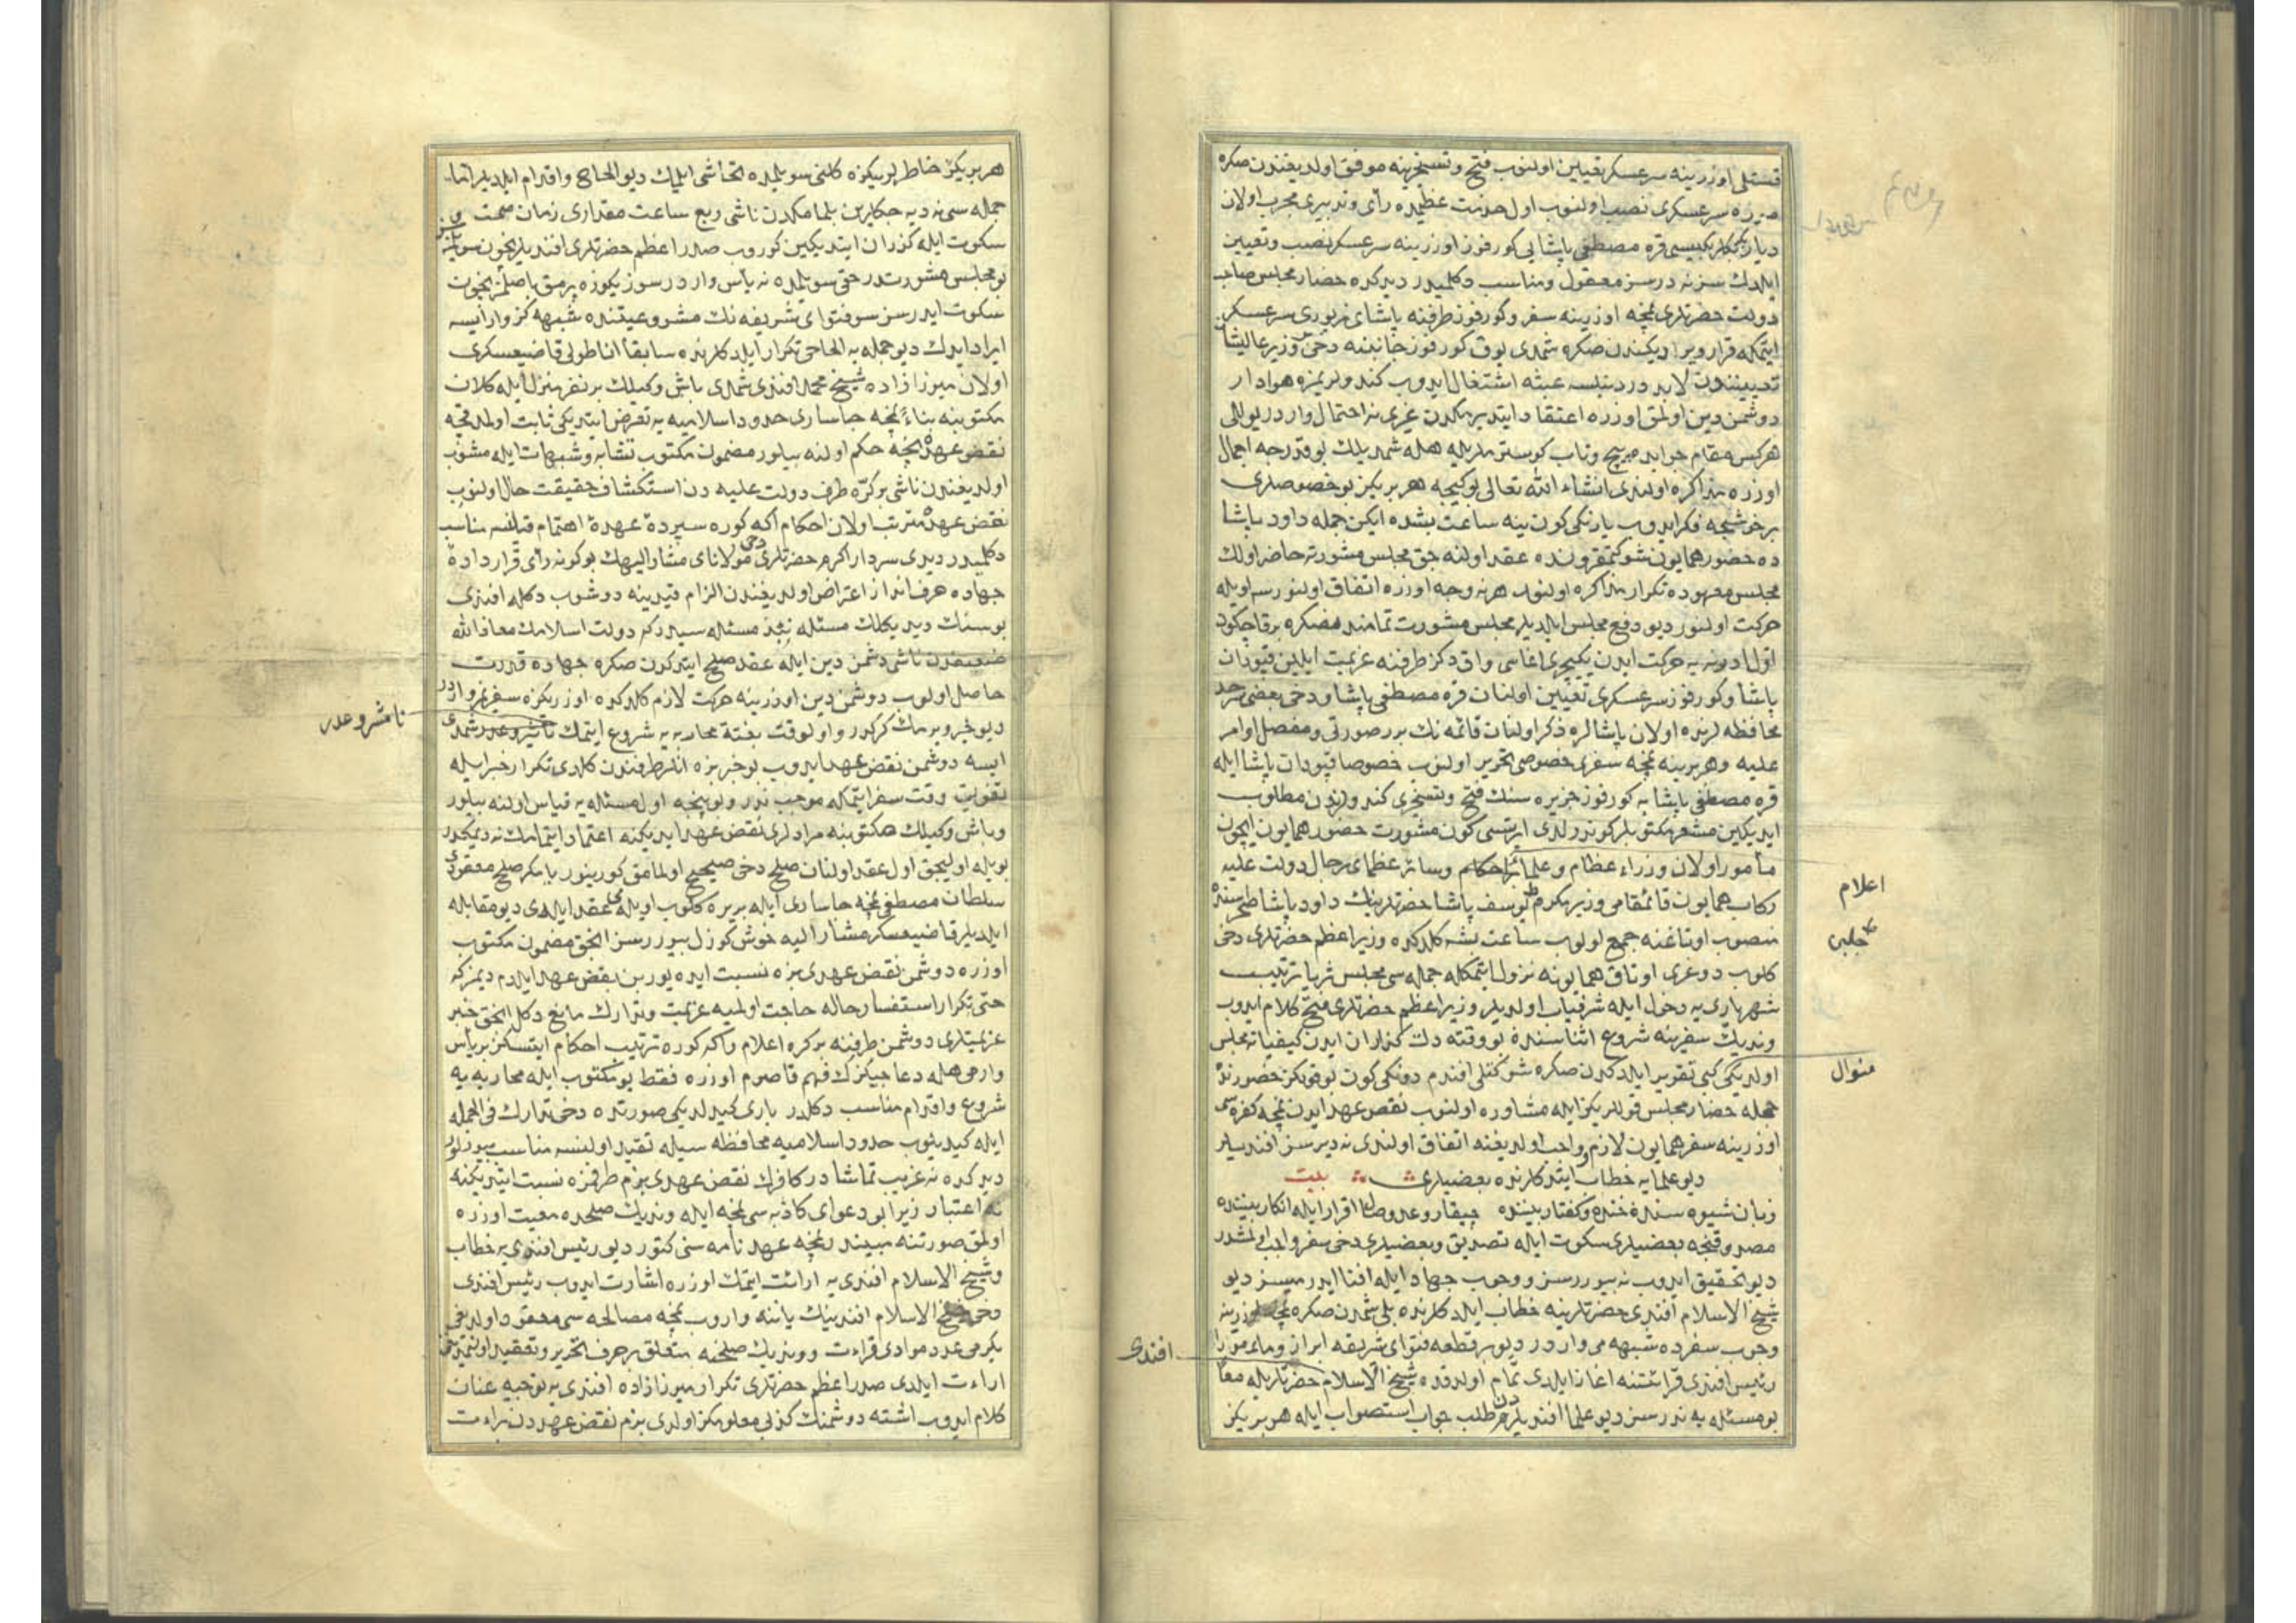 اوزرينه سرعسكر تعيين اولنوب فتح وتسخيرينه موفق اولديغندن صكره
سرعسكرى نصب اولنوب اول خدمت عظيمده رأى وتدبيرى مجرب اولان
ديار بكر بكلربكيسى قره مصطفى پاشايى كورفوز اوزرينه سرعسكر نصب وتعيين
ايلدك سز نه درسز معقول ومناسب دكلميدر ديدكده حضار مجلس صاحب
دولت حضرتلرى نمچه اوزرينه سفر وكورفوز طرفنه پاشاى مزبورى سرعسكر
ايتمكه قرار ويرديكندن صكره شمدى يوق كورفوز جانبنه دخى وزير عاليشان
تعييننده لابد در دينلسه عبثه اشتغال ايدوب كندولريمزه هوادار
دوشمن دين اولمق اوزره اعتقاد ايتديرمكدن غيرى نه احتمال وار در يوللى
هركس مقام جوابده پيچ وتاب كوسترملريله هله شمديلك بو قدرجه اجمال
اوزره مذاكره اولندى انشاء الله تعالى بو كيجه هر بريكز بو خصوصلرى
بر خوشجه فكر ايدوب يارنكى كون ينه ساعت بشده ايكن جمله داود پاشا
ده حضور همايون شوكتمقرونده عقد اولنه جق مجلس مشورته حاضر اولك
مجلس معهوده تكرار مذاكره اولنوب هر نه وجه اوزره اتفاق اولنور سه اويله
حركت اولنور ديو دفع مجلس ايلديلر مجلس مشورت تمامندنصكره برقاچ كون
اول ادرنه يه حركت ايدن يكيچرى اغاسى واق دكز طرفنه عزيمت ايلين قپودان
پاشا وكورفوز سرعسكرى تعيين اولنان قره مصطفى پاشا ودخى بعضى سرحد
محافظه لرنده اولان پاشالره ذكر اولنان قائمه نك برر صورتى ومفصل اوامر
عليه وهر برينه نمچه سفرى خصوصى تحرير اولنوب خصوصا قپودان پاشا ايله
قره مصطفى پاشا يه كورفوز جزيره سنك فتح وتسخيرى كندولردن مطلوب
ايديكين مشعر مكتوبلر كوندرلدى ايرتسى كون مشورت حضور همايون ايچون
مأمور اولان وزراء عظام وعلماء احكام وسائر عظماى رجال دولت عليه
اعلام
ركاب همايون قائمقامى وزير مكرم يوسف پاشا حضرتلرينك داود پاشا صحراسنده
چلبى
منصوب اوتاغنه جمع اولوب ساعت بشه كلدكده وزير اعظم حضرتلرى دخى
كلوب دوغرى اوتاق همايونه نزول ايتمكله جمله سى مجلس ثريا ترتيب
شهريارى يه دخول ايله شرفياب اولديلر وزير اعظم حضرتلرى فتح كلام ايدوب
ونديك سفرينه شروع اثناسنده بو وقته دك كذران ايدن كيفيات مجلس
منوال
اولديكى كبى تقرير ايلدكدن صكره شوكتلى افندم دونكى كون بو قولكز حضورنده
جمله حضار مجلس قوللريكز ايله مشاوره اولنوب نقض عهد ايدن نمچه كفره سى
اوزرينه سفر همايون لازم وواجب اولديغنه اتفاق اولندى نه ديرسز افنديلر
ديو علمايه خطاب ايتدكلرنده بعضيلرى بيت
زبان شيوه سنده خنده وكفتار بيننده چيقار وعد وصال اقرار ايله انكار بيننده
مصدوقنجه بعضيلرى سكوت ايله تصديق وبعضيلرى دخى سفر واجب اولمشدر
ديو تحقيق ايدوب نه بيوررسز ووجوب جهاد ايله افتا ايدر ميسز ديو
شيخ الاسلام افندى حضرتلرينه خطاب ايلدكلرنده بلى شمدن صكره نمچه اوزرينه
وجوب سفرده شبهه مى وار در ديو بر قطعه فتواى شريفه ابراز
افندى
رئيس افندى قرائتنه اغاز ايلدى تمام اولدقده شيخ الاسلام حضرتلريله معا
بو مسئله يه نه درسز ديو علما افنديلردن طلب جواب استصواب ايله هر بريكز
هر بريكز خاطريكزه كلنى سويلمده تحاشى ايلميك ديو الحاح واقدام ايلديلر اما
جمله سى نه ديه جكلرين بلمامكدن ناشى ربع ساعت مقدارى زمان صمت و
سكوت ايله كذران ايتديكين كوروب صدر اعظم حضرتلرى افنديلر نيچون سويلمزسز
بو مجلس مشورتدر حق سويلمده نه بأس وار در سوزيكزه پرمق باصلمز نيچون
سكوت ايدرسز سو فتواى شريفه نك مشروعيتنده شبهه كز وار ايسه
ايراد ايدك ديو جمله يه الحاحى تكرار ايلدكلرنده سابقا اناطولى قاضيعسكرى
اولان ميرزا زاده شيخ محمد افندى شمدى باش وكيلك بر نفر منزل ايله كلان
مكتوبنه بناء نمچه جاسارى حدود اسلاميه يه تعرض ايتديكى ثابت اولمدقجه
نقض عهدنجه حكم اولنه بيلور مضمون مكتوب تشابه وشبهات ايله مشوب
اولديغندن ناشى بر كره طرف دولت عليه دن استكشاف حقيقت حال اولنوب
نقض عهده مترتب اولان احكام اكه كوره سپرده عهده اهتمام قلنسه مناسب
دكلميدر ديدى سردار اكرم حضرتلرى دخى مولاناى مشار اليهك بو كونه رأى قرار داده
جهاده حرف انداز اعتراض اولديغندن الزام قيدينه دوشوب دكله افندى
بو سنك ديديكك مسئله نبذ مسئله سيدر كه دولت اسلامك معاذ الله
ضعفندن ناشى دشمن دين ايله عقد صلح ايتدكدن صكره جهاده قدرت
حاصل اولوب دوشمن دين اوزرينه حركت لازم كلدكده اوزريكزه سفريمز وار در
نا مشروعدر
ديو خبر ويرمك كركدر واولوقت بغتة محاربه يه شروع ايتمك نا مشروعدر شمدى
ايسه دوشمن نقض عهد ايدوب بو خبر بزه انلر طرفندن كلدى تكرار خبر ايله
تفويت وقت سفر ايتمكه موجب ندر وبو نيچه اول مسئله يه قياس اولنه بيلور
وباش وكيلك مكتوبنه مرادلرى نقض عهد ايديكنه اعتماد ايتمامك نه ديمكدر
بويله اوليجق اول عقد اولنان صلح دخى صحيح اولمامق كورينور يا مكر صلح معقودى
سلطان مصطفى نمچه جاسارى ايله بر يره كلوب اويله مى عقد ايلدى ديو مقابله
ايلديلر قاضيعسكر مشار اليه خوش كوزل بيوررسز انجق مضمون مكتوب
اوزره دوشمن نقض عهدى بزه نسبت ايده يور بن نقض عهد ايلدم ديمز كه
حتى تكرار استفسار حاله حاجت اولميه عزيمت وتدارك مانع دكل انجق خبر
عزيمتلرى دوشمن طرفنه بر كره اعلام واكه كوره ترتيب احكام ايتسكز بر بأس
وارمى هله دعاجيكزك فهم قاصرم اوزره فقط بو مكتوب ايله محاربه يه
شروع واقدام مناسب دكلدر بارى كيدلديكى صورتده دخى تدارك فى الجمله
ايله كيديلوب حدود اسلاميه محافظه سيله تقيد اولنسه مناسب بيورلور
ديدكده نه غريب تماشا در كافرك نقض عهدى بزم طرفمزه نسبت ايتديكنه
نه اعتبار زيرا بو دعواى كاذبه سى نمچه ايله ونديك صلحده معيت اوزره
اولمق صورتنه مبيندر نمچه عهدنامه سنى كتور ديو رئيس افندى يه خطاب
وشيخ الاسلام افندى يه ارائت ايتمك اوزره اشارت ايدوب رئيس افندى
دخى شيخ الاسلام افندينك ياننه واروب نمچه مصالحه سى معقود اولديغى
يكرمى عدد موادى قراءت وونديك صلحنه متعلق بر حرف تحرير وتعقيد اولنمديغن
اراءت ايلدى صدر اعظم حضرتلرى تكرار ميرزا زاده افندى يه توجيه عنان
كلام ايدوب اشته دوشمنك كذبى معلومكز اولدى بزم نقض عهددن براءت